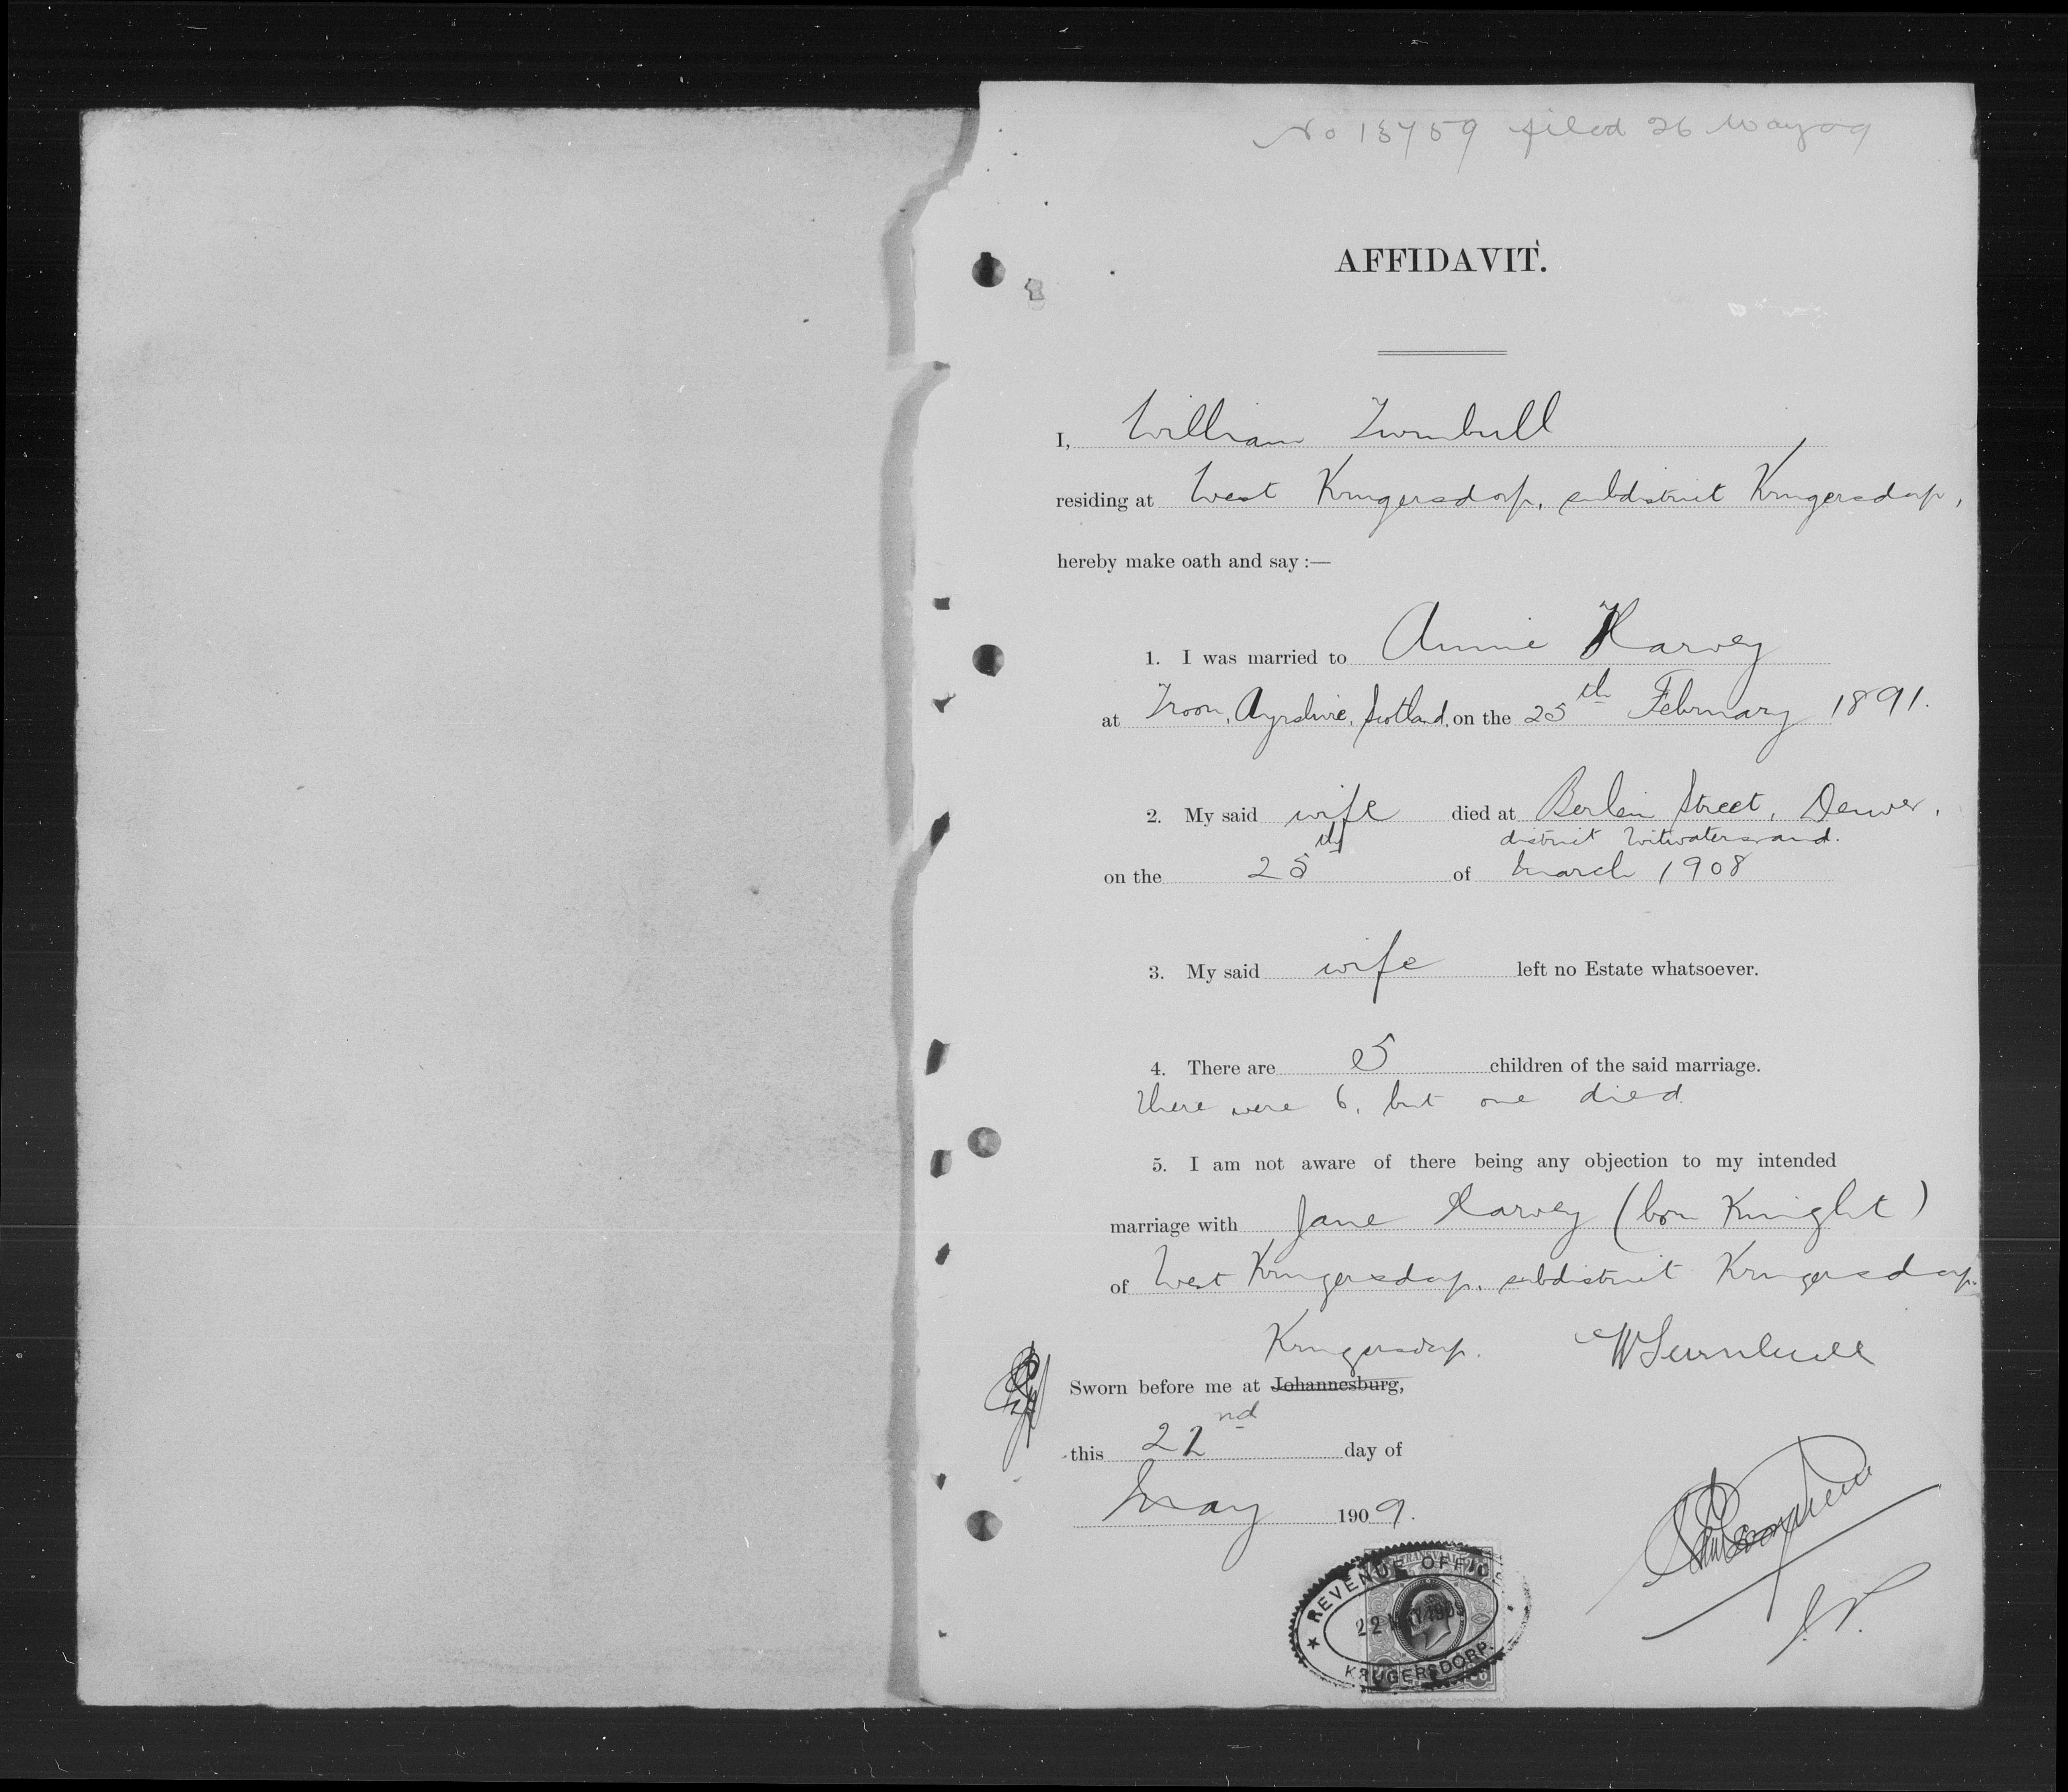 No 13759 filed 26 May 09
AFFIDAVIT.
I, William Turnbull
residing at West Krugersdorp, subdistrict Krugersdorp,
hereby make oath and say :—
1. I was married to Annie Harvey
at Troon, Ayrshire, Scotland, on the 25th February 1891.
2. My said wife died at Berlein Street, Denver,
district Witwatersrand.
on the 25th of March 1908
3. My said wife left no Estate whatsoever.
4. There are 5 children of the said marriage.
There were 6, but one died.
5. I am not aware of there being any objection to my intended
marriage with Jane Harvey (born Knight)
of West Krugersdorp, subdistrict Krugersdorp.
Krugersdorp. WTurnbull
Sworn before me at Johannesburg,
this 22nd day of
May 1909.
J.P.
TRANSVAAL
REVENUE OFFICE
22 MAY 1909
KRUGERSDORP.